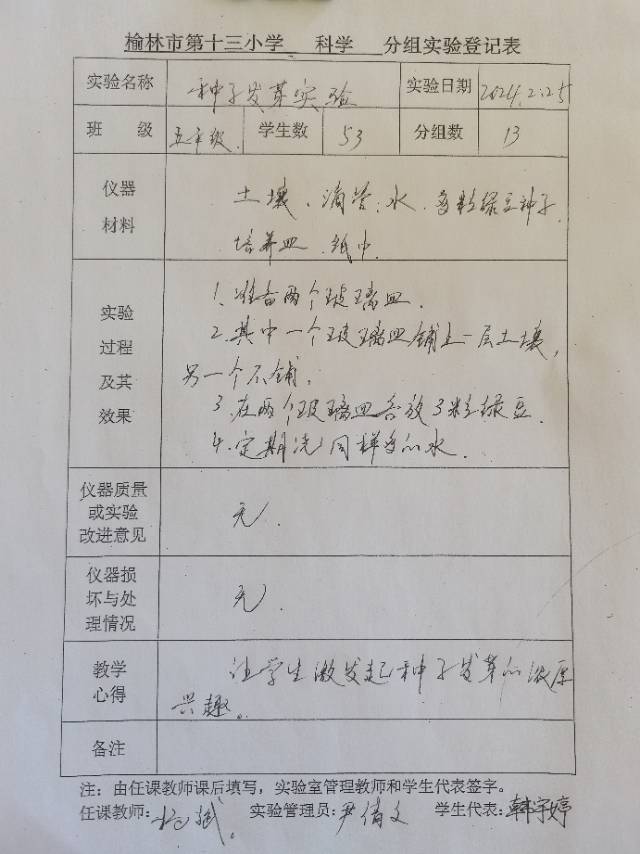 榆林市第十三小学 科学 分组实验登记表
实验名称 种子发芽实验 实验日期 2024.2.25
班 级 五年级. 学生数 53 分组数 13
仪器材料 土壤、滴管、水、多粒绿豆种子、
培养皿、纸巾.
实验过程及其效果 1、准备两个玻璃皿.
2、其中一个玻璃皿铺上一层土壤,
另一个不铺.
3、在两个玻璃皿各放3粒绿豆.
4、定期浇同样多的水.
仪器质量或实验改进意见 无.
仪器损坏与处理情况 无.
教学心得 让学生激发起种子发芽的浓厚
兴趣。
备注
注：由任课教师课后填写，实验室管理教师和学生代表签字。
任课教师: 实验管理员:尹倩文 学生代表:韩宇婷